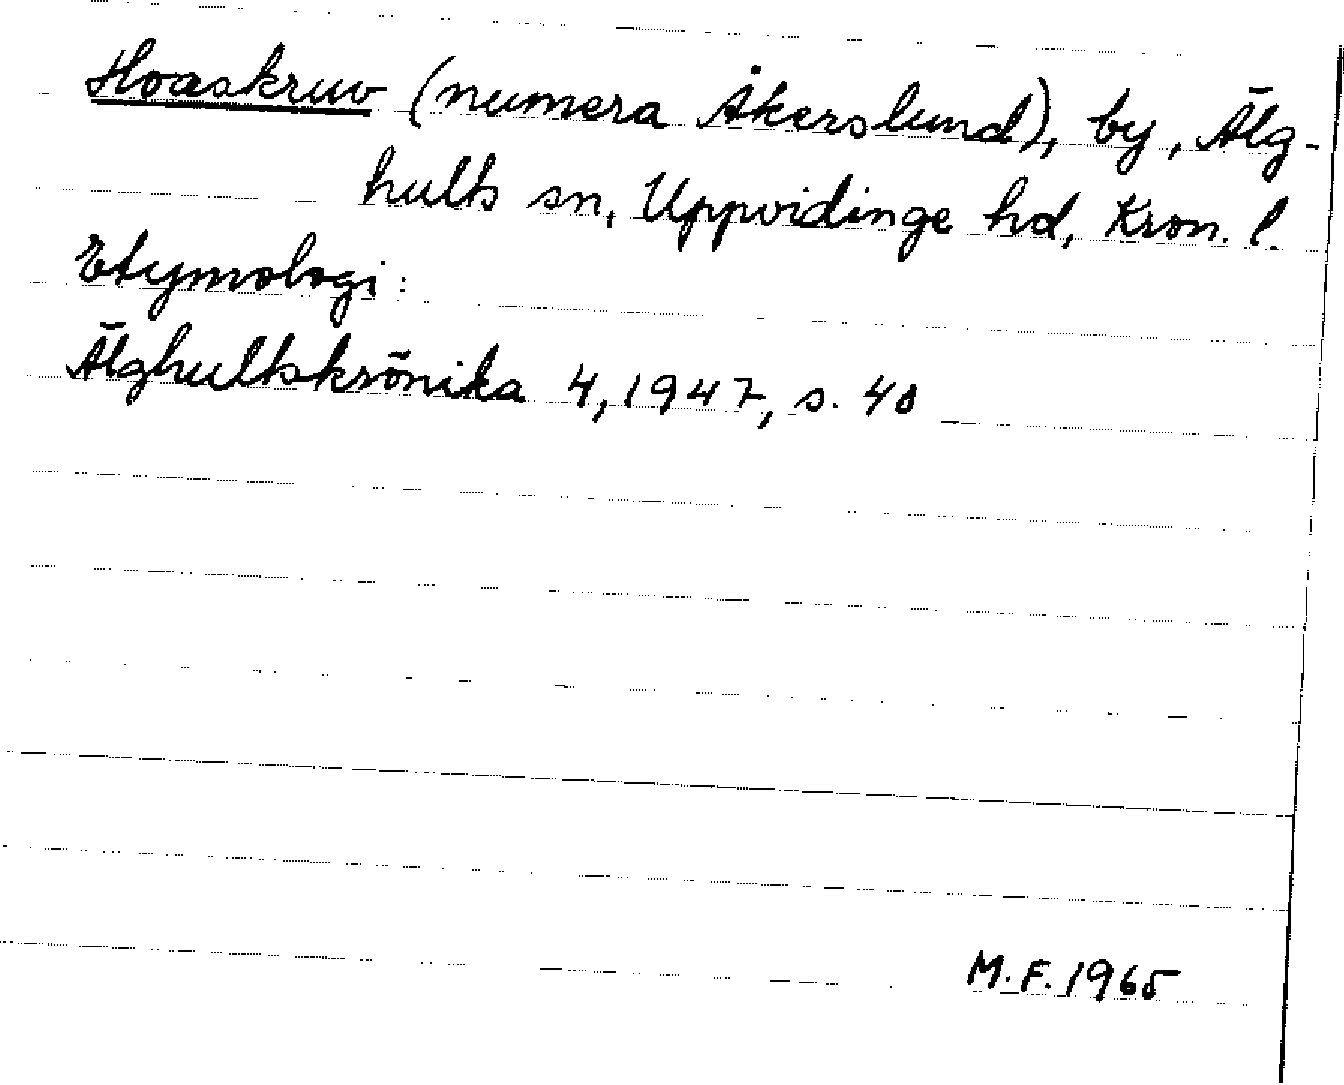 Hoaskruv (numera Åkerslund), by, Älg-
hults sn, Uppvidinge hd, Kron. l.
Etymologi:
Älghultskrönika 4, 1947, s. 40
M.F. 1965